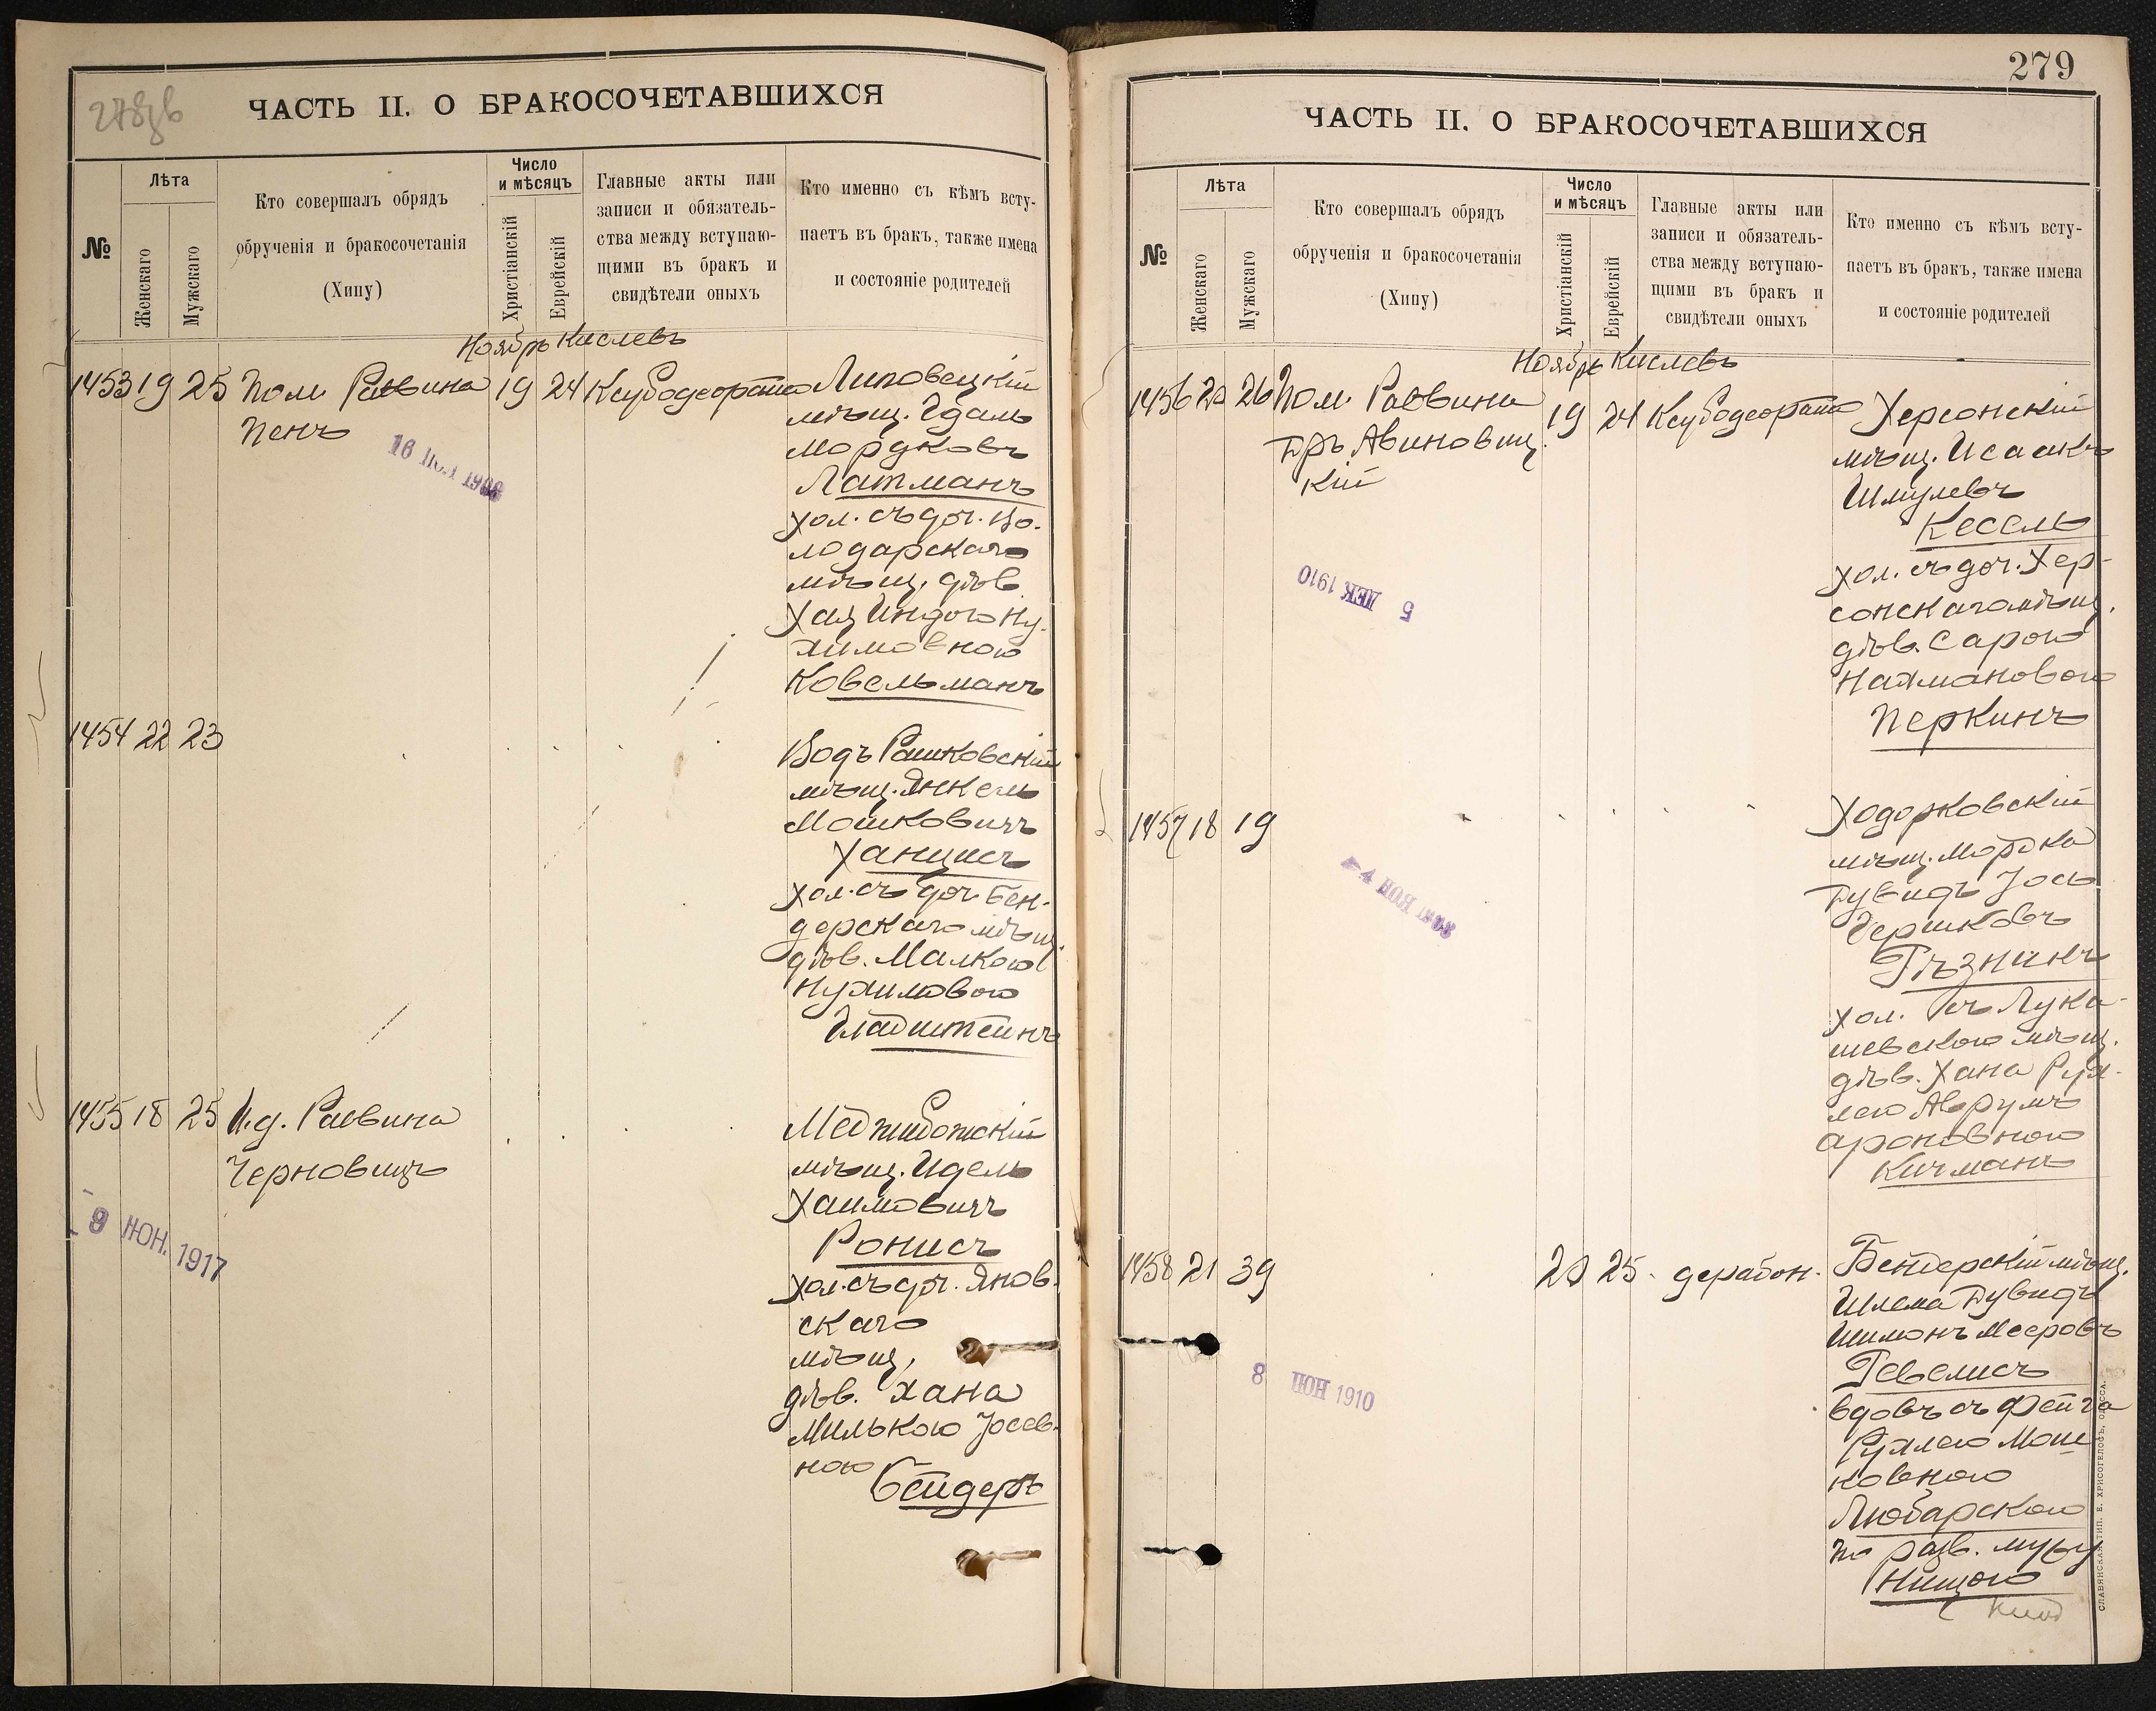 278об
ЧАСТЬ II. О БРАКОСОЧЕТАВШИХСЯ
№
Лѣта
Женскаго
Мужскаго
Кто совершалъ обрядъ
обрученія и бракосочетанія
(Хипу)
Число
и мѣсяцъ
Христіанскій
Еврейскій
Главные акты или
записи и обязатель-
ства между вступаю-
щими въ бракъ и
свидѣтели оныхъ
Кто именно съ кѣмъ всту-
паетъ въ бракъ, также имена
и состояніе родителей
Ноябрь Кислевъ
1453 19 25 Пом. Раввина 19 24
Пенъ
Липовецкій
мѣщ.
Мордковъ
Латманъ
хол. съ доч. Во-
лодарскаго
мѣщ. дѣв.
Ну-
химовною
Ковельманъ
1454 22 23
Рашковскій
мѣщ. Янкель
Мошковичъ
Ханцисъ
хол. съ доч. Бен-
дерскаго мѣщ.
дѣв. Малкою
Нухимовою
Гладштейнъ
1455 18 25 И.д. Раввина
Черновицъ
9 ІЮН. 1917
Меджибожскій
мѣщ. Идель
Хаимовичъ
Ронисъ
хол. съ доч. Янов-
скаго
мѣщ.
дѣв. Хана
Милькою Іосев-
ною
Бейдеръ
279
ЧАСТЬ II. О БРАКОСОЧЕТАВШИХСЯ
№
Лѣта
Женскаго
Мужскаго
Кто совершалъ обрядъ
обрученія и бракосочетанія
(Хипу)
Число
и мѣсяцъ
Христіанскій
Еврейскій
Главные акты или
записи и обязатель-
ства между вступаю-
щими въ бракъ и
свидѣтели оныхъ
Кто именно съ кѣмъ всту-
паетъ въ бракъ, также имена
и состояніе родителей
Ноябрь Кислевъ
1456 20 26 Пом. Раввина 19 24
Дръ Авиновиц-
кій
5 ДЕК 1910
Херсонскій
мѣщ. Исаакъ
Шмулевъ
Кесель
хол. съ доч. Хер-
сонскаго мѣщ.
дѣв. Сарою
Нахмановою
Перкинъ
1457 18 19
Ходорковскій
мѣщ. Мордка
Дувидъ Іось
Гершковъ
Рѣзникъ
хол. съ Лука-
шевскою мѣщ.
дѣв. Хана Рух-
лею Аврумъ
Ароновною
Кичманъ
1458 21 39 20 25
8 ІЮН 1910
Бендерскій мѣщ.
Шлема Дувидъ
Шимонъ Мееровъ
Ревелисъ
вдовъ съ Фейга
Рухлею Мош-
ковною
Любарскою
по разв. мужу
Нищою
СЛАВЯНСКАЯ ТИП. Е. ХРИСОГЕЛОСЪ, ОДЕССА.